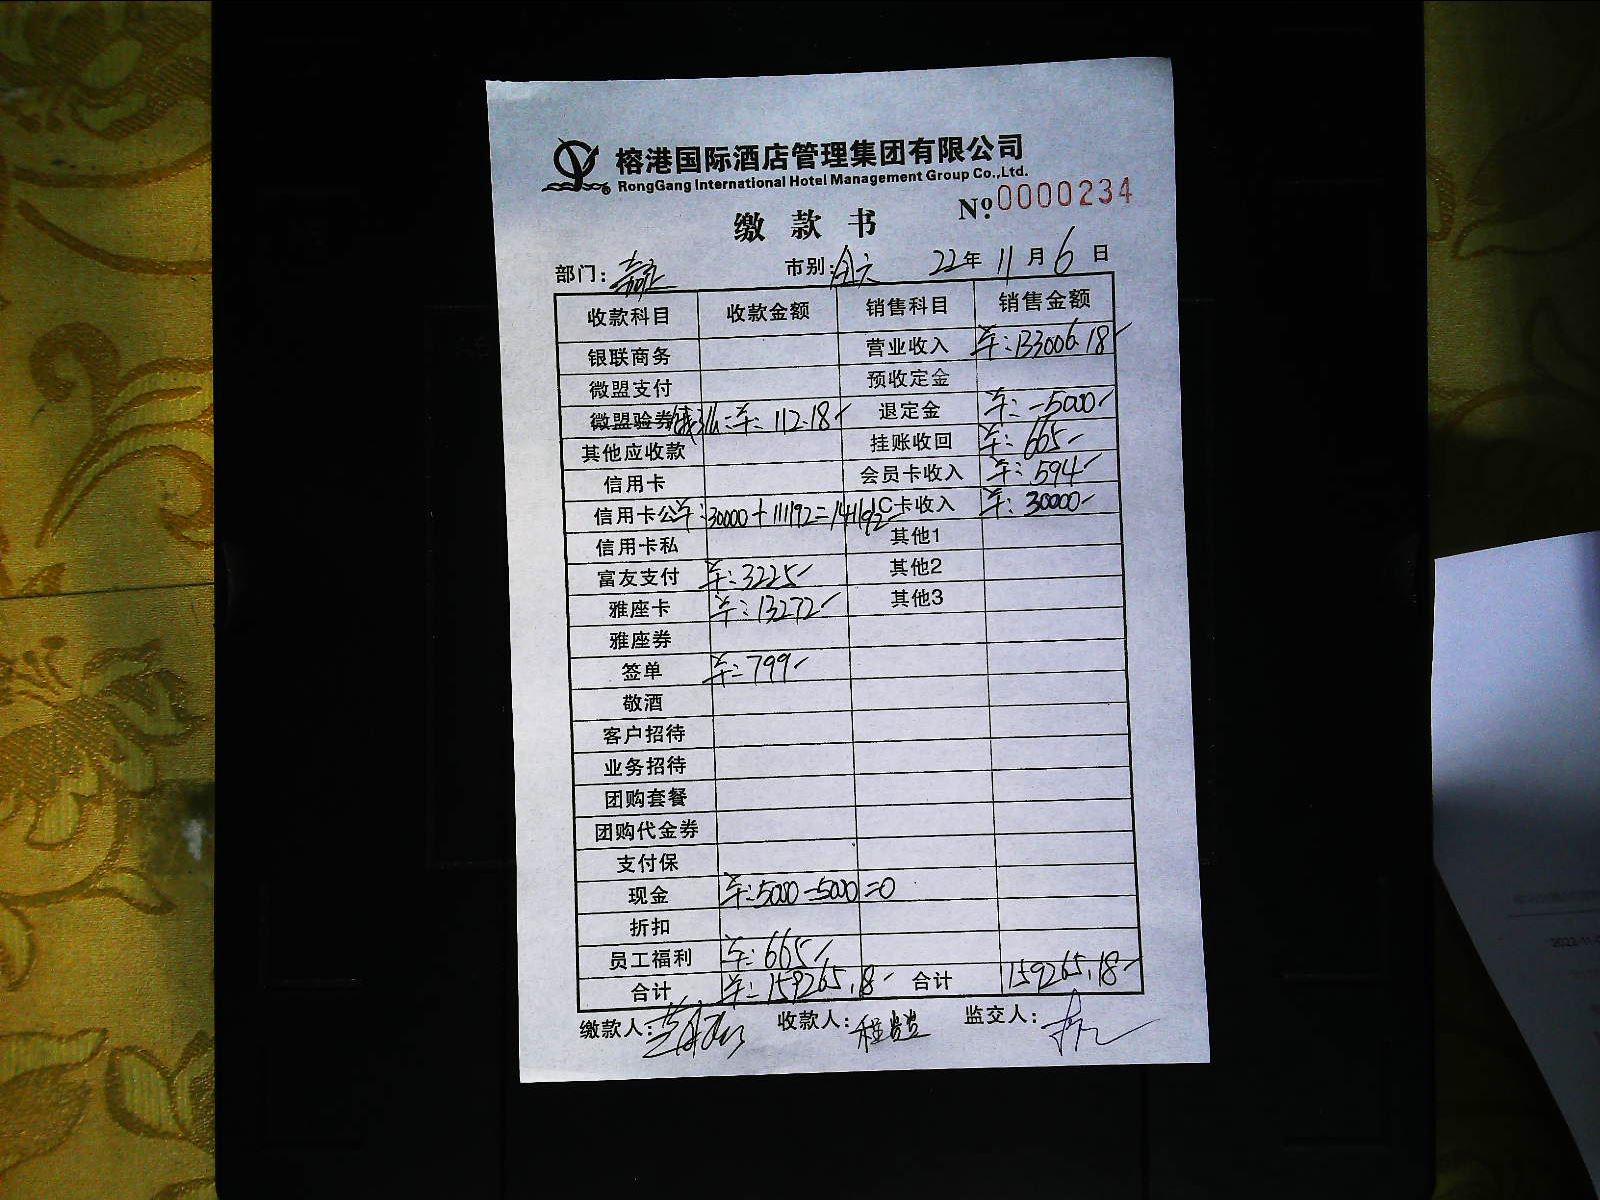 榕港国际酒店管理集团有限公司
RongGang International Hotel Management Group Co.,Ltd.
缴款书 Nº 0000234
部门: 市别: 22年 11月 6日
收款科目 收款金额 销售科目 销售金额
银联商务 营业收入 ¥:133006.18
微盟支付 预收定金
微盟验券 ¥: 112.18 退定金 ¥: -5000
其他应收款 挂账收回 ¥: 665
信用卡 会员卡收入 ¥: 594
信用卡公 ¥:30000+111192=141192 IC卡收入 ¥: 30000
信用卡私 其他1
富友支付 ¥:3225 其他2
雅座卡 ¥:13272 其他3
雅座券
签单 ¥:799
敬酒
客户招待
业务招待
团购套餐
团购代金券
支付保
现金 ¥:5000-5000=0
折扣
员工福利 ¥:665
合计 ¥:159265.18 合计 159265.18
缴款人: 收款人: 监交人: